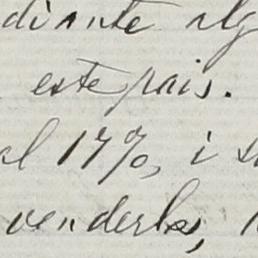 diante alg
este pais.
al 17%, i s
venderlos,